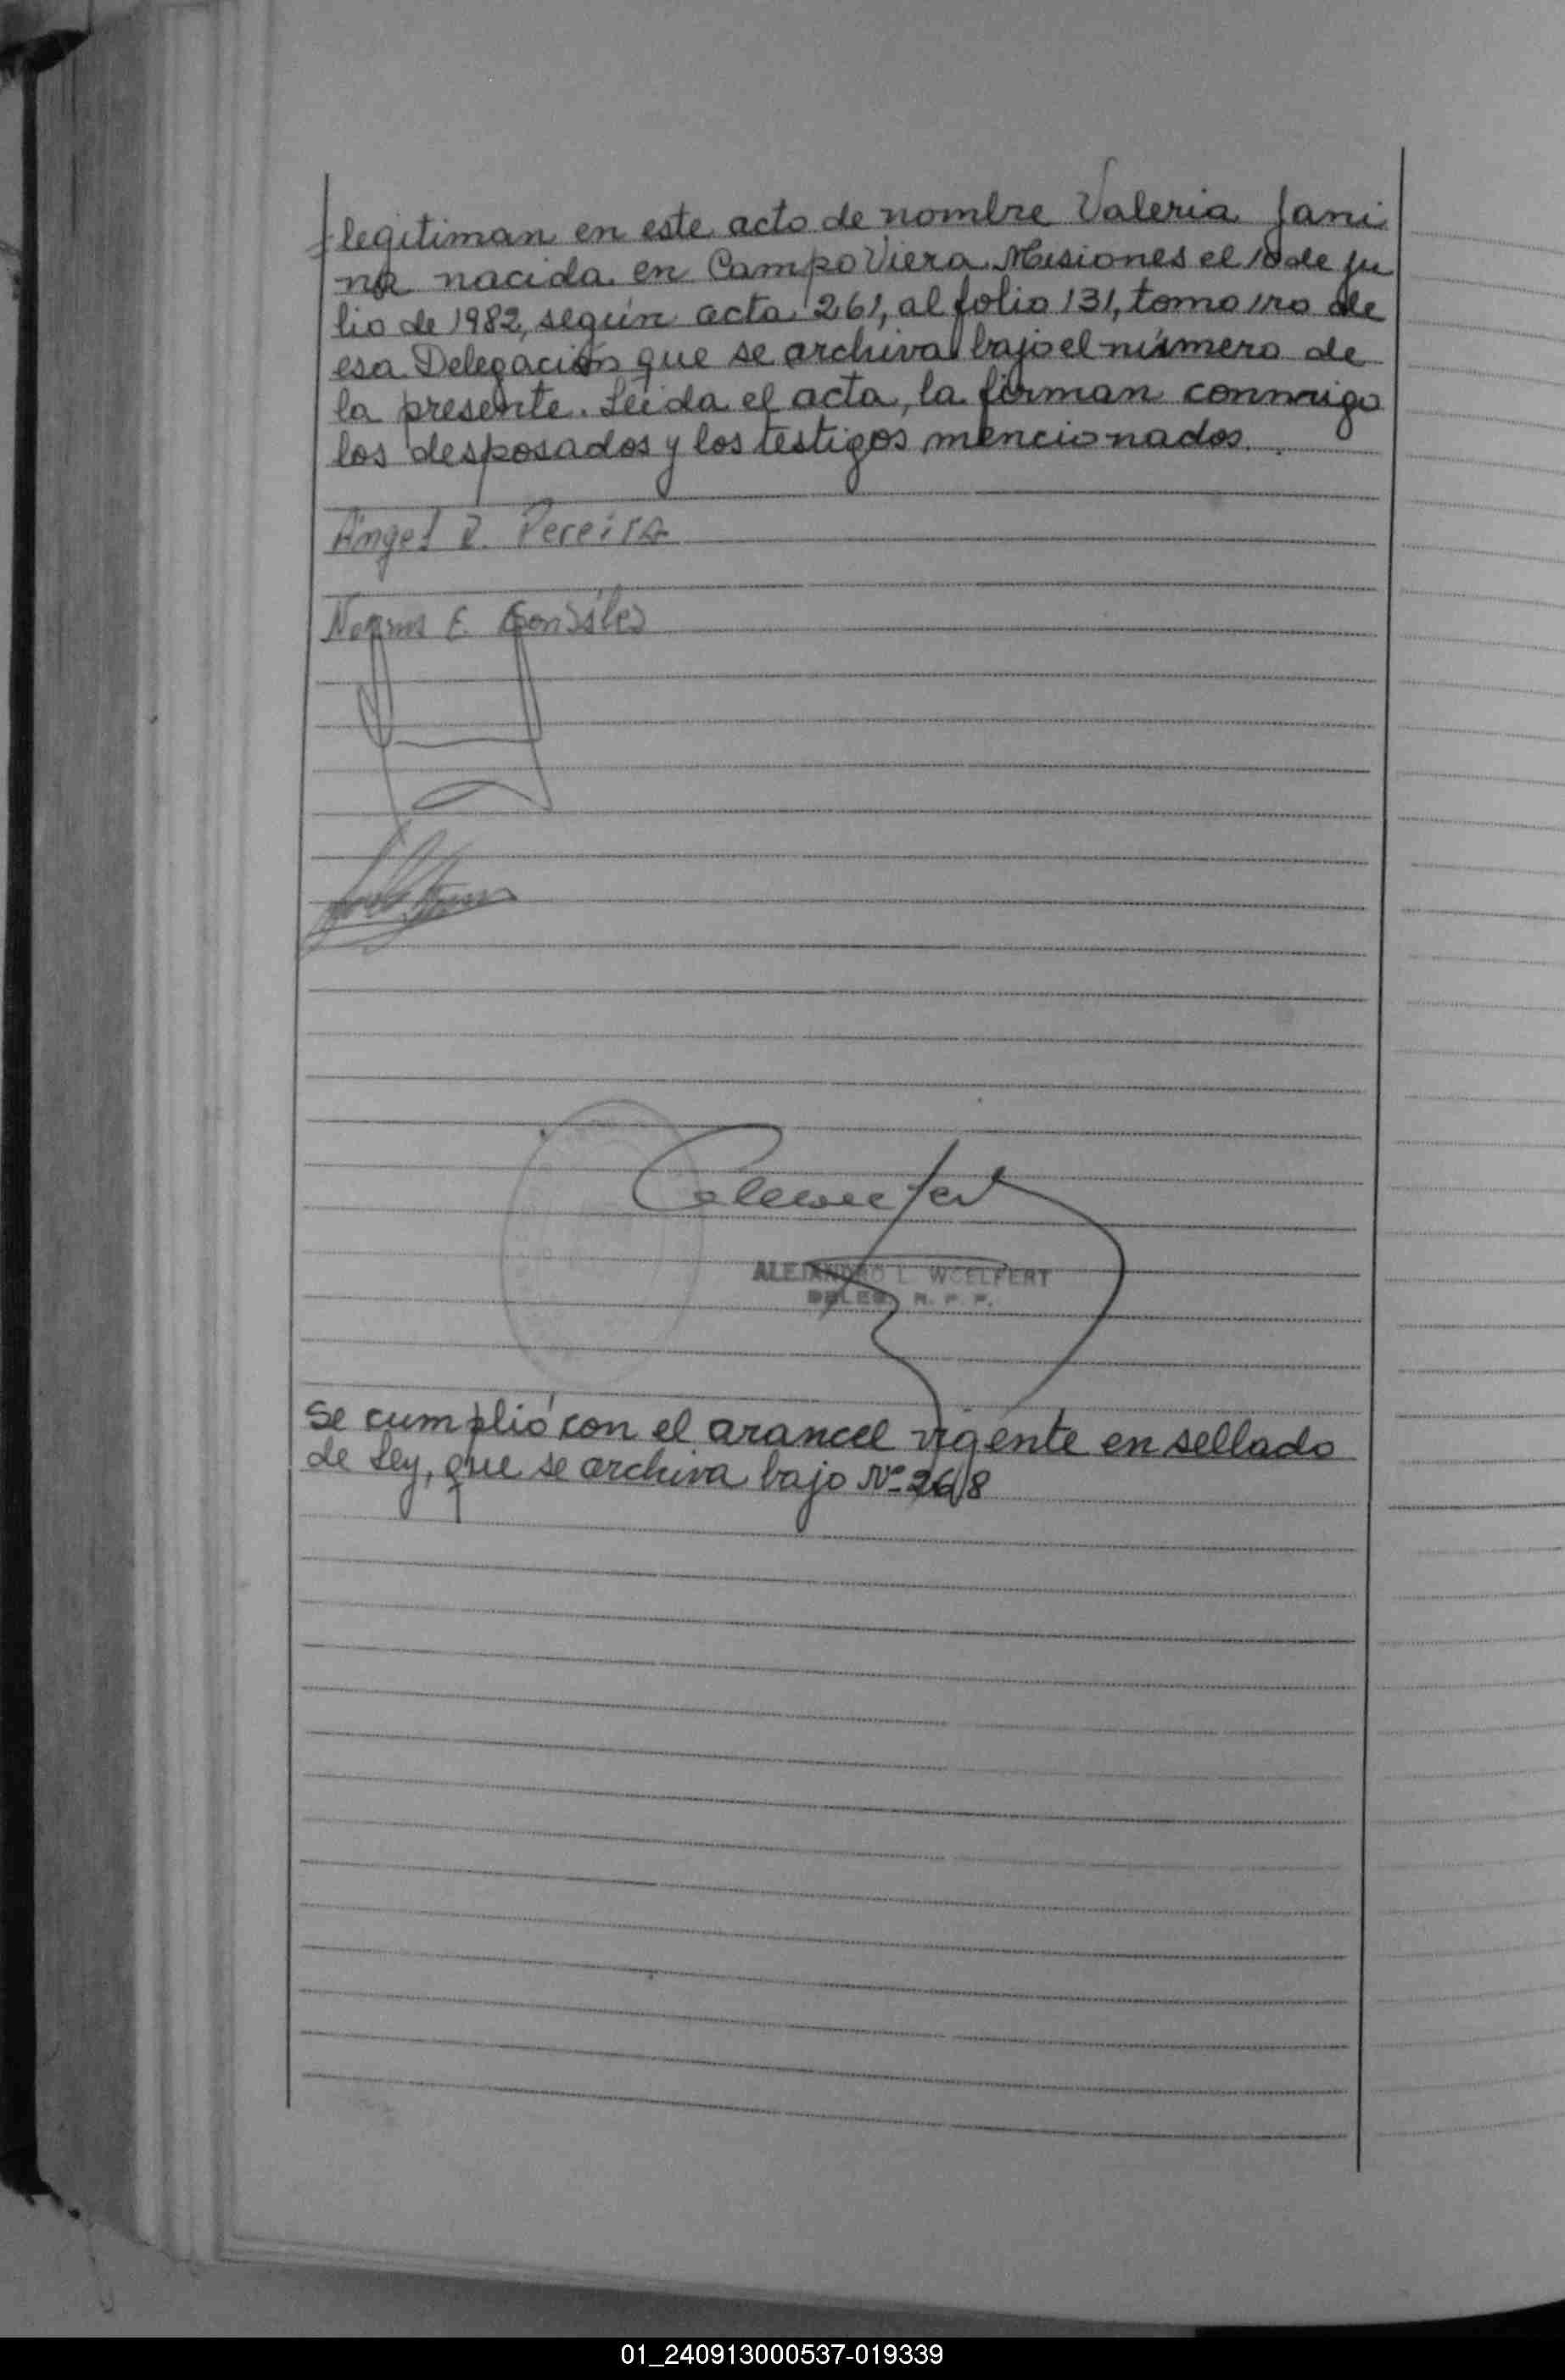 legitiman en este acto de nombre Valeria Jani
na nacida en Campo Viera Misiones el 10 de ju
lio de 1982, según acta 261, al folio 131, tomo 1ro de
esa Delegación que se archiva bajo el número de
la presente. Leida el acta, la firman conmigo
los desposados y los testigos mencionados.
Angel R. Pereira
Norma E. Gonsáles
ALEJANDRO L. WOELFERT
DELEG. R. P. P.
Se cumplió con el arancel vigente en sellado
de Ley, que se archiva bajo Nº 268
01_240913000537-019339